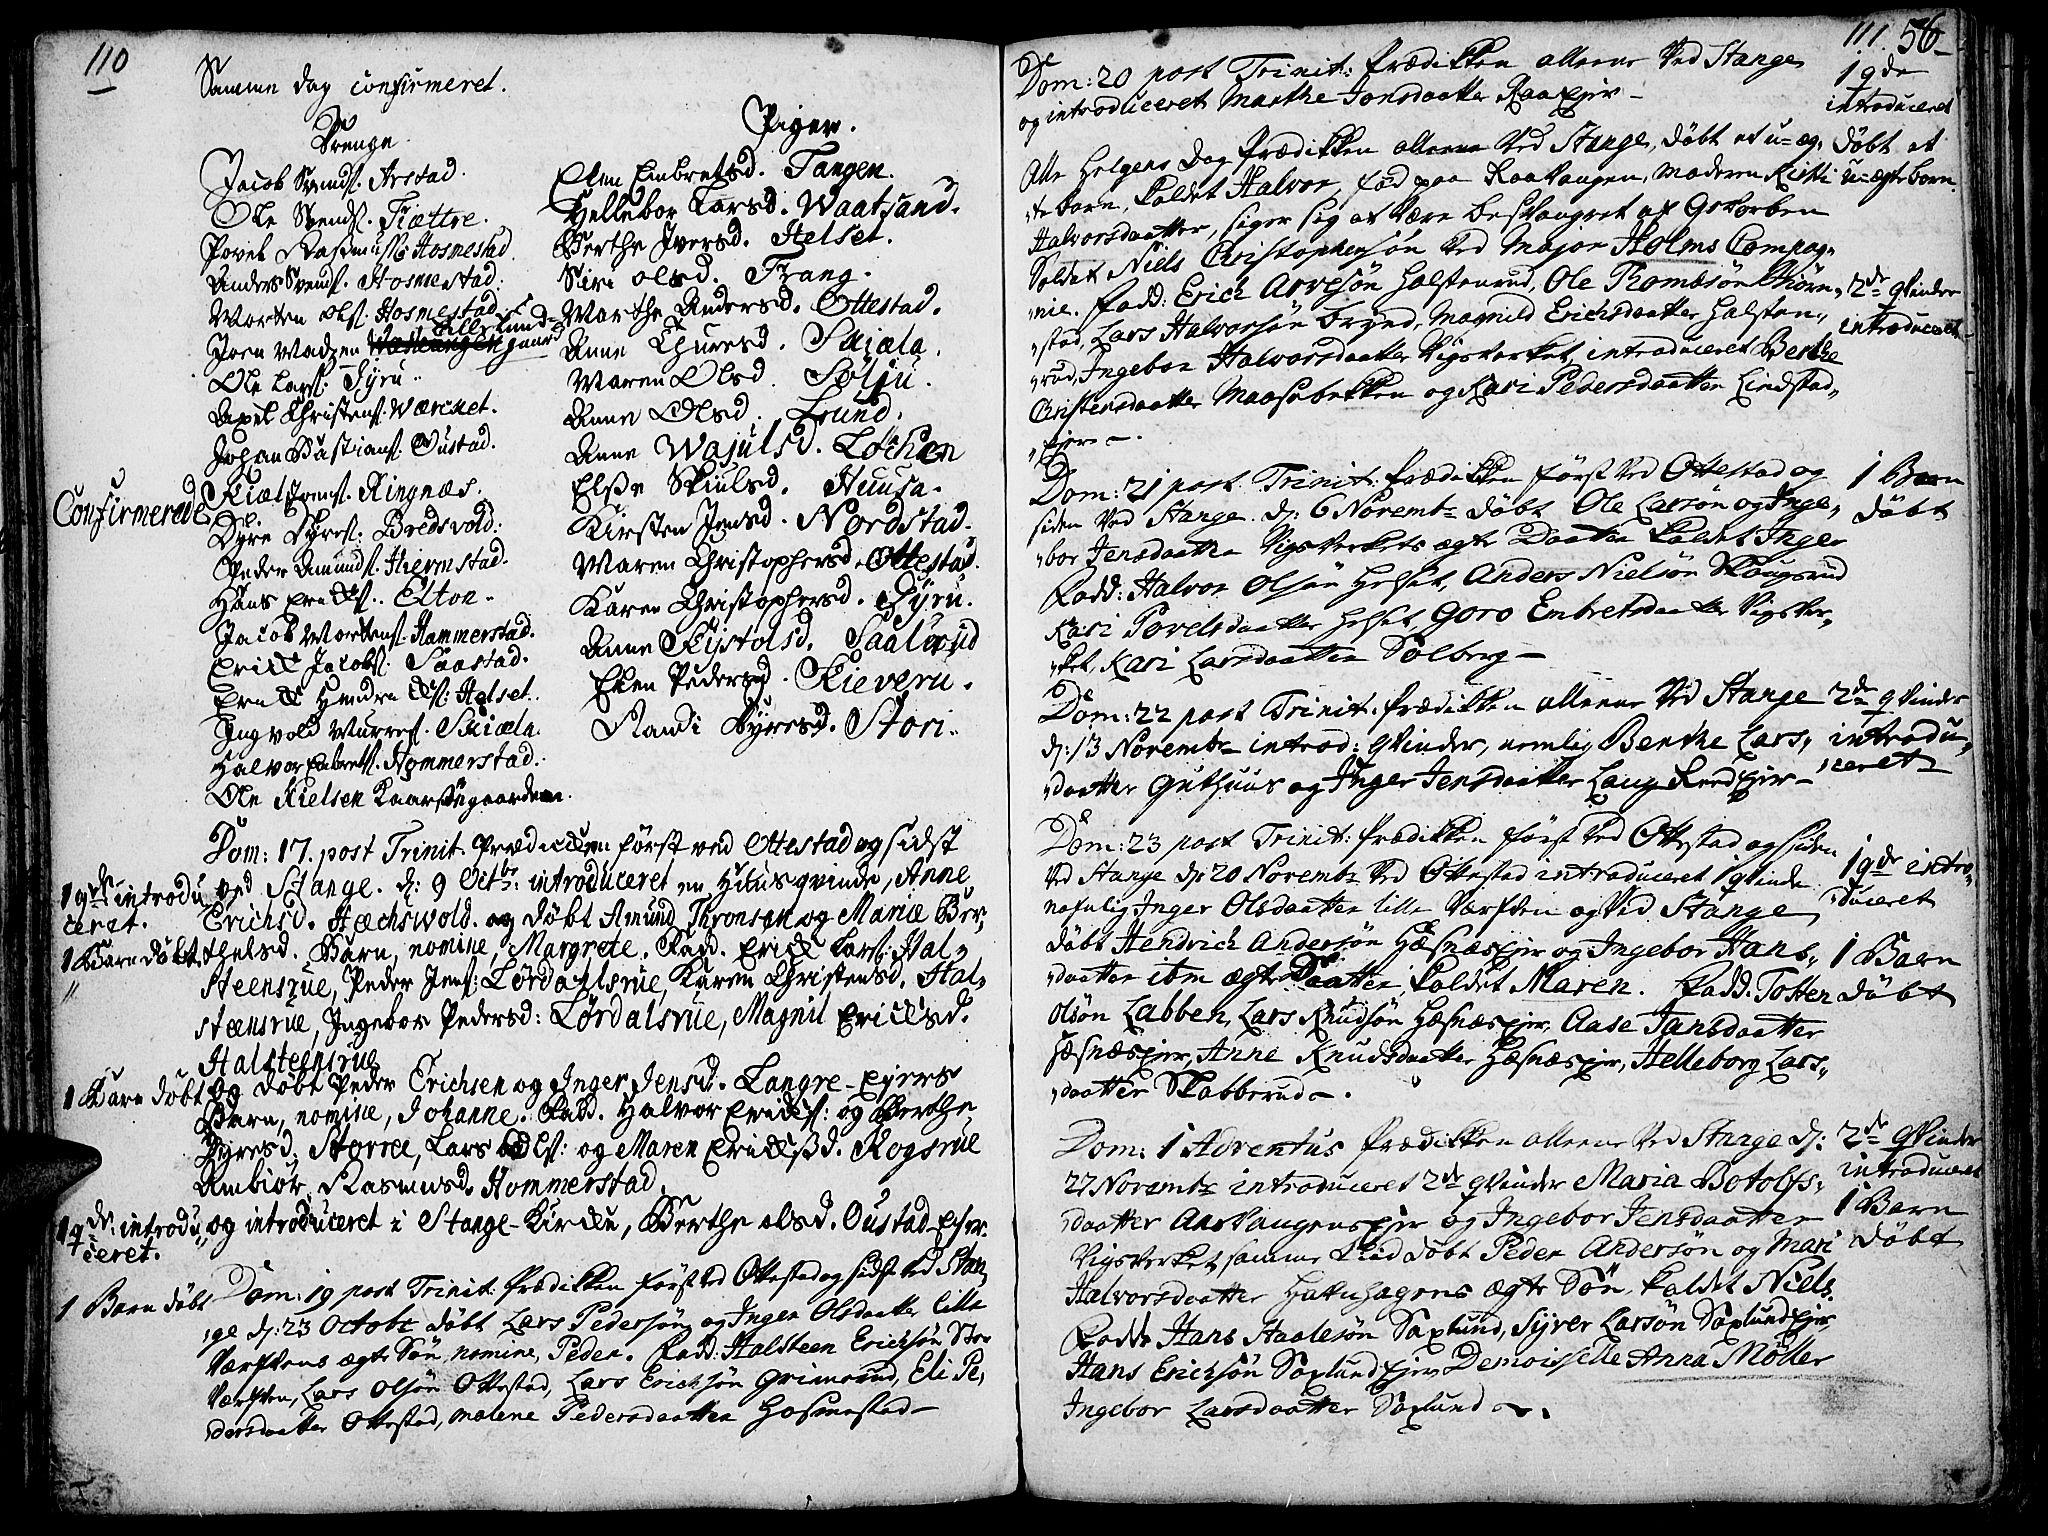 110
Samme dag confirmeret.
Drenge.
Jacob Svends. Arstad.
Ole Svends. Fiættre.
Povel Rasmuss. Hosmestad.
Anders Svends. Hosmestad.
Morten Ols. Hosmestad.
Lillelund-
Joen Madzen gaard
Ole Lars. Syru.
Axel Christens. Wærcket.
Johan Bastians. Oustad.
Confirmerede
Kiæl Jens. Ringnæs.
Dyre Dyres. Bredsvold.
Peder Amunds. Hiermstad.
Hans Ericks. Elton.
Jacob Mortens. Hammerstad.
Erick Jacobs. Saastad.
Erick Hendricks. Helset.
Ingvold Murres. Skiæla.
Halvor Embrets. Hommerstad.
Ole Nielsen Kaarssegaarden.
Piger.
Elen Embretsd. Tangen.
Hellebor Larsd. Waatsand.
Berthe Iversd. Helset.
Siri Olsd. Frang.
Marthe Andersd. Ottestad.
Anne Thuresd. Skiæla.
Maren Olsd. Sølju.
Anne Olsd. Lund.
Anne Wajulsd. Løchen
Elsse Skiulsd. Huusa.
Kirsten Jensd. Nordstad.
Maren Christophersd. Ottestad.
Karen Christophersd. Syru.
Anne Kistolsd. Saalerud
Elen Pedersd. Kieveru.
Randi Dyresd. Stori.
Dom: 17. post Trinit. Prædicken først ved Ottestad og sidst
1 qde introdu ved Stange. d: 9 Octbr: introduceret en Huusqvinde, Anne
ceret. Erichsd. Hæchswold. og døbt Amund Thronsen og Mariæ Ber,
1 Barn døbt. thelsd. Barn, nomine, Margrete. Fadd. Erick Lars. Hal-
steensrue, Peder Jens: Lørdahlsrue, Karen Christensd. Hal-
steensrue, Ingebor Pedersd: Lørdalsrue, Magnil Ericksd.
Halsteensrue
1 Barn døbt og døbt Peder Erichsen og Inger Jensd. Langre-Eyers
Barn, nomine, Johanne. Fadd. Halvor Ericks: og Berthe
Dyresd. Storree, Lars Ols: og Maren Ericksd. Rogsrue
Ambiør Rasmusd. Hommerstad.
1 qde: introdu, og introduceret i Stange-Kircke, Berthe Olsd. Oustad-Eyer.
ceret.
1 Barn døbt Dom: 19 post Trinit: Prædikken først ved Ottestad og sidst ved Stan,
,ge d: 23 Octobr døbt Lars Pedersøn og Inger Olsdaatter Lille
Værstens ægte Søn, nomine, Peder. Fadd: Halsteen Ericksøn Sto
Værsten, Lars Olsøn Ottestad, Lars Ericksøn Grimerud, Eli Pe,
dersdaatter Ottestad, Malene Pedersdaatter Hosmestad-
111. 56-
Dom: 20 post Trinit: Prædikken allene ved Stange
og introduceret Marthe Jonsdaatter Raaejer-
1 qde
introduceret
Alle Helgens Dag Prædikken allene ved Stange, døbt et u-æg,
,te barn, kaldet Halvor, fød paa Raavangen, moderen Kisti
Halvorsdaatter, siger sig at være besvangret af Gevorben
Soldat Niels Christophersøn ved Major Holms Compag-
,nie. Fadd: Erich Arvesøn Halstenrud, Ole Trondsøn Thorn,
,stad, Lars Halvorsøn Brynd, Magnild Erichsdaatter Halsten,
,rud, Ingebor Halvorsdaatter Vigsverket, introduceret Berthe
Christensdaatter Maasebekken og Kari Pedersdaatter Lindstad,
,ejer-.
døbt et
u-ægte barn.
2de qvinder
introduceret-
Dom: 21 post Trinit: Prædikken først ved Ottestad og
siden ved Stange. d: 6 Novembr døbt Ole Larsøn og Inge,
,bor Jensdaatter Vigsverkets ægte Daatter kaldet Inger
Fadd: Halvor Olsøn Helset, Anders Nielsøn Skougsrud
Kari Povelsdaatter Helset, Goro Embretsdaatter Vigsver,
,ket, Kari Larsdaatter Solberg-
1 Barn
døbt
Dom: 22 post Trinit: Prædikken allene ved Stange
d: 13 Novembr introd: qvinder, nemlig Benthe Lars,
,daatter Guthuus og Inger Jensdaatter Langkeredejer-
2de qvinder
introdu,
,ceret
Dom: 23 post Trinit: Prædikken først ved Ottestad og siden
ved Stange d: 20 Novembr ved Ottestad introduceret 1 qvinde
nafnlig Inger Olsdaatter Lille Værsten og ved Stange
døbt Hendrich Andersøn Hæsnæsejer og Ingebor Hans,
,daatter ibm ægte Daatter, kaldet Maren. Fadd. Totten
Olsøn Labben, Lars Knudsøn Hæsnæsejer, Aase Jansdaatter
Hæsnæsejer, Anne Knudsdaatter Hæsnæsejer, Helleborg Lars,
,daatter Skabberud-.
1 qde intro,
,duceret
1 Barn
døbt
Dom: 1 Adventus Prædikken allene ved Stange d:
27 Novembr introduceret 2de qvinder Maria Botolfs,
,daatter Aasvangensejer og Ingebor Jensdaatter
Vigsverket, samme Tiid døbt Peder Andersøn og Mari
Halvorsdaatter Hakehagens ægte Søn, kaldet Niels.
Fadd: Hans Staalesøn Saxlund, Syver Larsøn Saxlundejer,
Hans Ericksøn Saxlundejer, Demoiselle Anna Møller
Ingebor Larsdaatter Saxlund-.
2de qvinder
introduceret
1 Barn
døbt